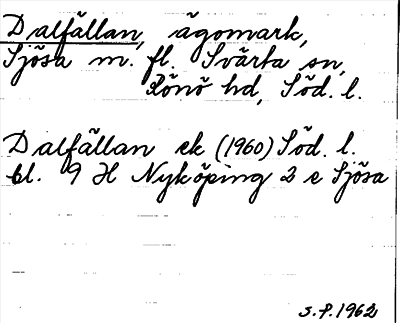 Dalfällan, ägomark,
Sjösa m. fl. Svärta sn,
Rönö hd, Söd. l.
Dalfällan ek (1960) Söd. l.
bl. 9 H Nyköping 2 e Sjösa
S.P. 1962